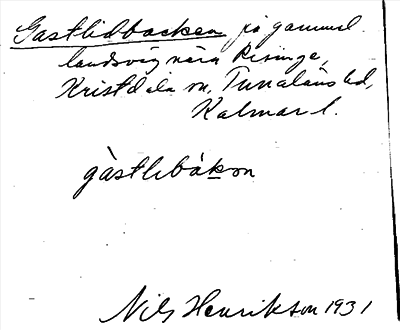 Gastlidbacken på gammal
landsväg nära Risinge,
Kristdala sn, Tunaläns hd,
Kalmar l.
gàstlibákon
Nils Henrikson 1931